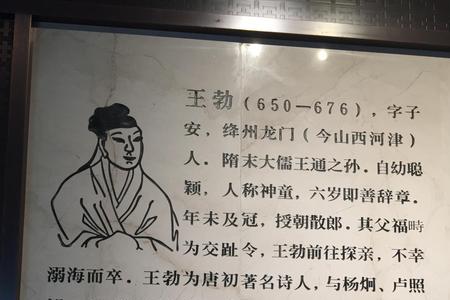 王勃（650—676），字子
安，绛州龙门（今山西河津）
人．隋末大儒王通之孙．自幼聪
颖，人称神童，六岁即善辞章．
年未及冠，授朝散郎．其父福時
为交趾令，王勃前往探亲，不幸
溺海而卒．王勃为唐初著名诗人，与杨炯、卢照